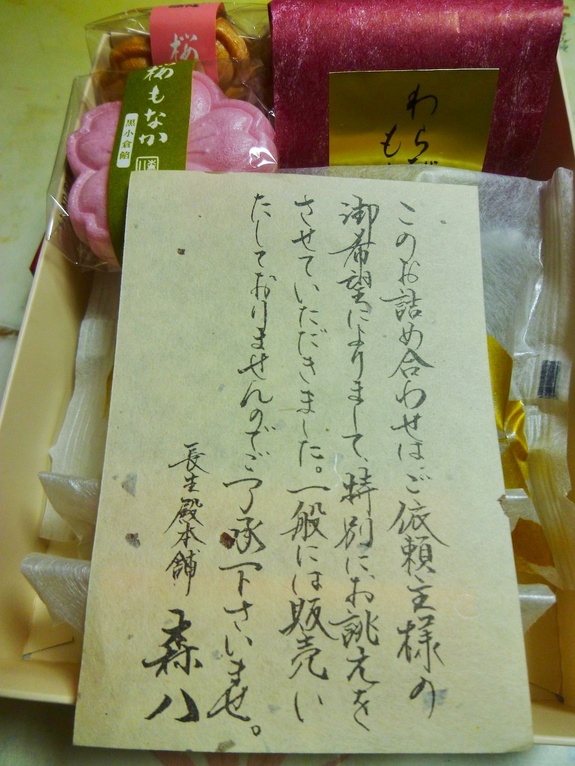 桜
桜もなか
黒小倉餡
わらび
も
このお詰め合わせは、ご依頼主様の
御希望によりまして、特別にお誂えを
させていただきました。一般には販売い
たしておりませんのでご了承下さいませ。
長生殿本舗
森八